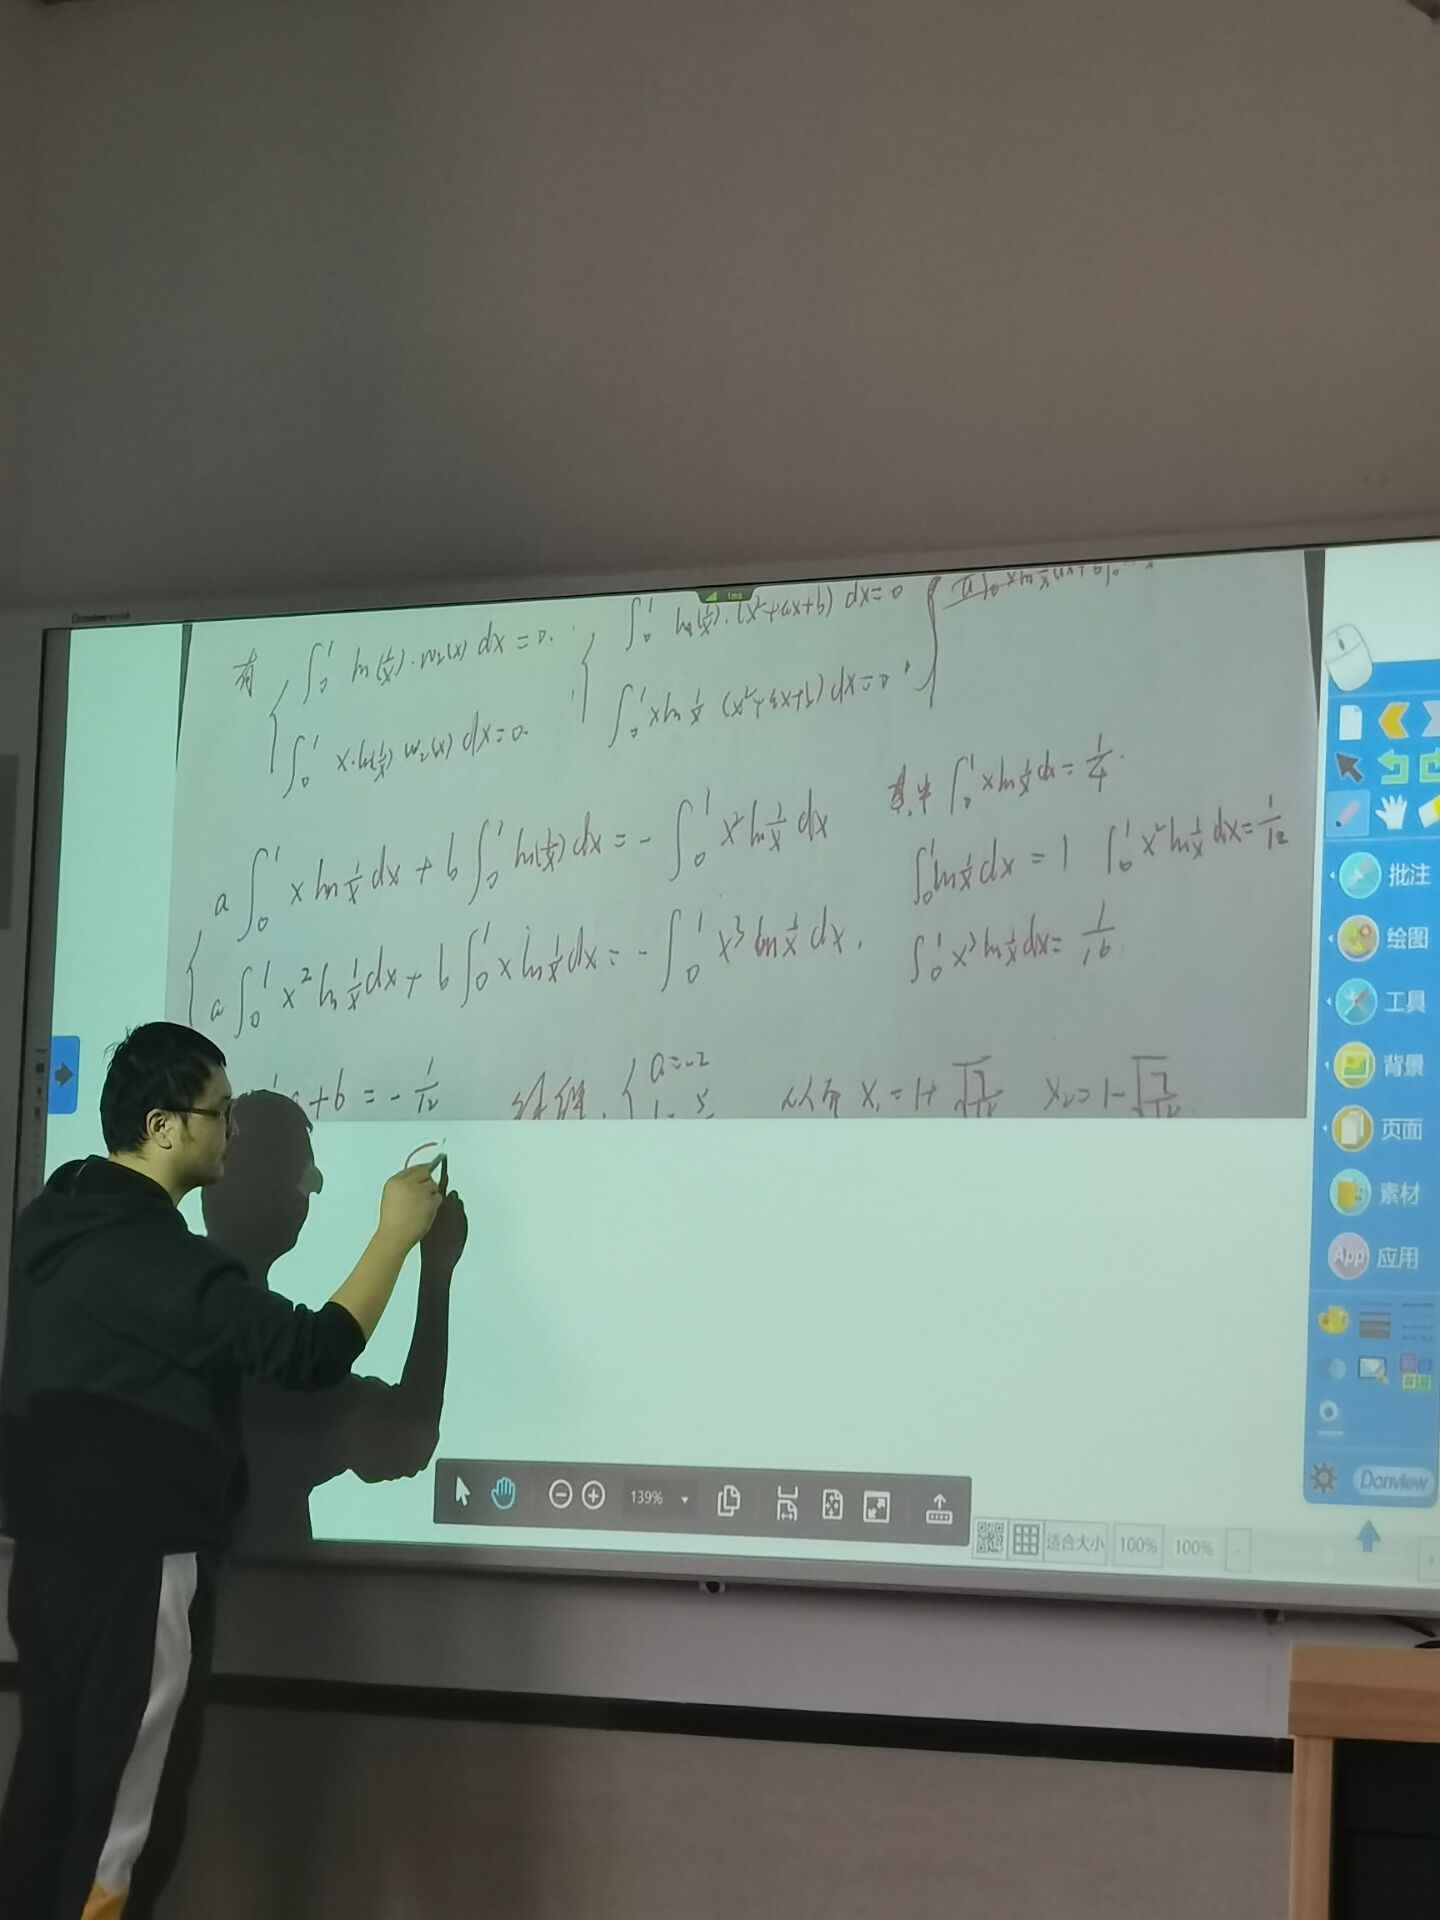 有 { ∫₀¹ ln(1/x)·w₂(x) dx = 0. { ∫₀¹ ln(1/x)·(x²+ax+b) dx = 0
∫₀¹ x·ln(1/x) w₂(x) dx = 0. ∫₀¹ x ln 1/x (x²+ax+b) dx = 0
{ a ∫₀¹ x ln 1/x dx + b ∫₀¹ ln(1/x) dx = - ∫₀¹ x² ln 1/x dx
a ∫₀¹ x² ln 1/x dx + b ∫₀¹ x ln 1/x dx = - ∫₀¹ x³ ln 1/x dx.
其中 ∫₀¹ x ln 1/x dx = 1/4.
∫₀¹ ln 1/x dx = 1 ∫₀¹ x² ln 1/x dx = 1/12
∫₀¹ x³ ln 1/x dx = 1/16
a + b = - 1/12 { a = -2
从而 x₁ = 1+ x₂ = 1-
批注
绘图
工具
背景
页面
素材
App 应用
Donview
139%
适合大小 100% 100%